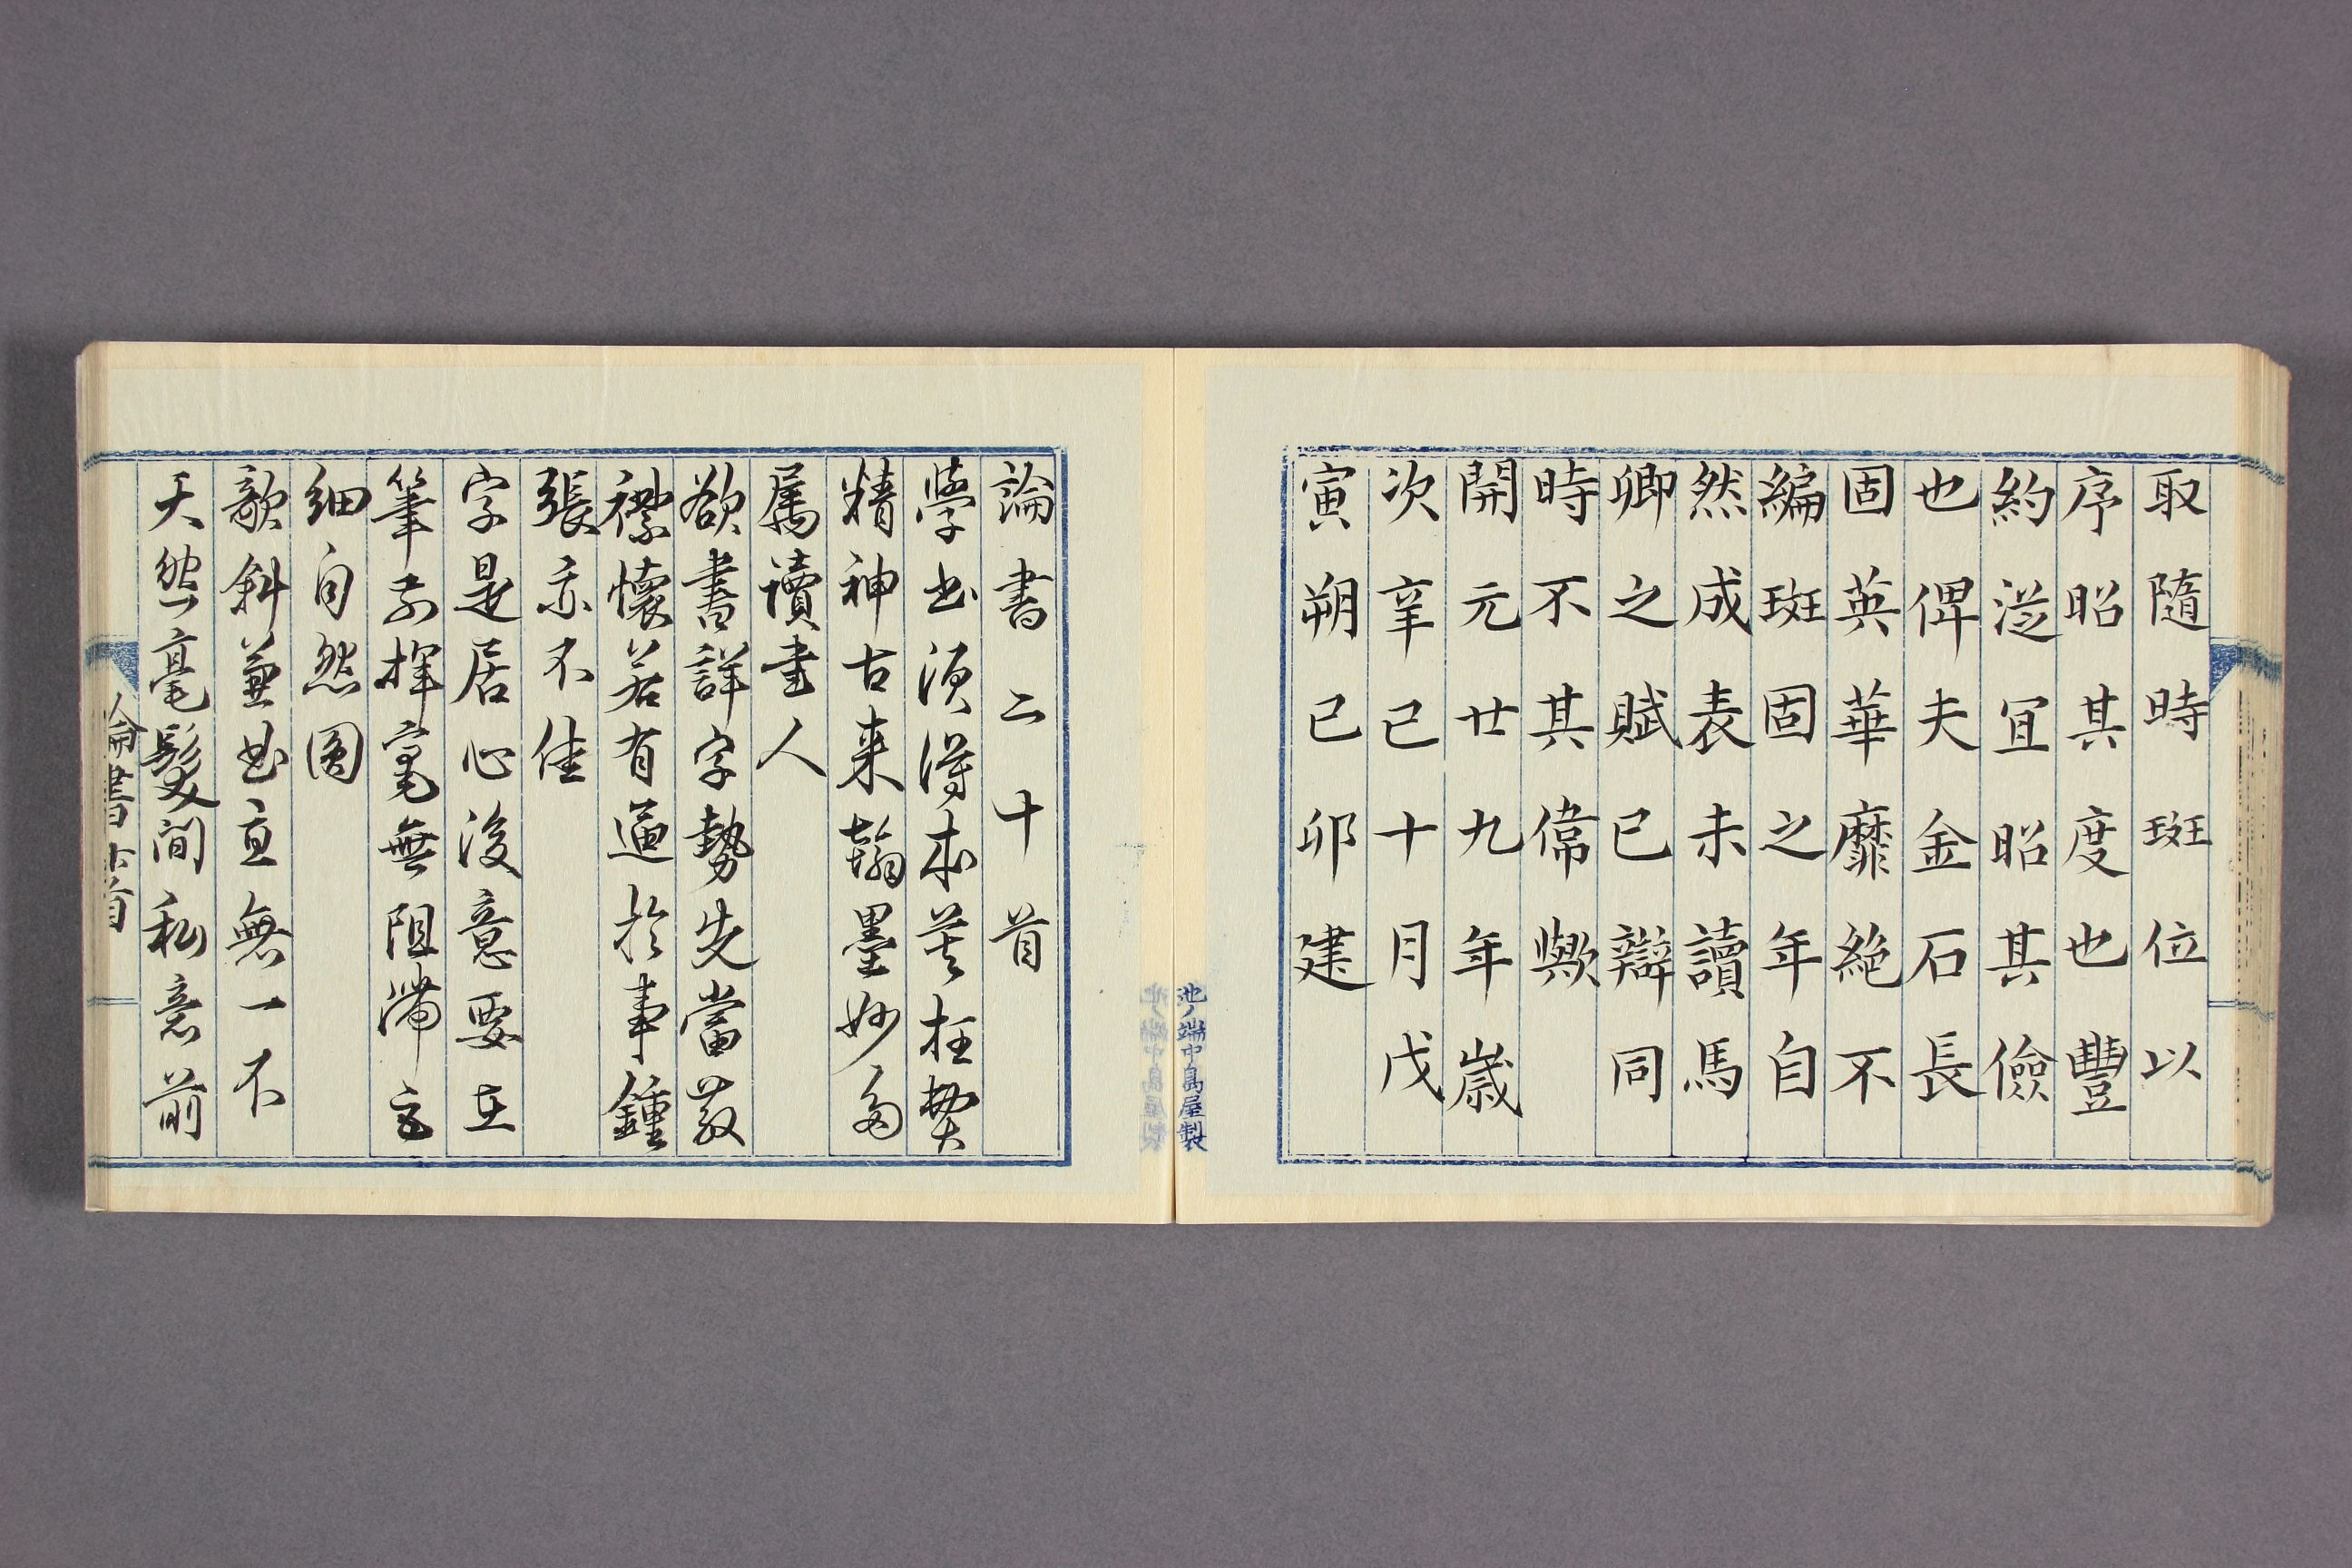 取隨時斑位以
序昭其度也豐
約從宜昭其儉
也俾夫金石長
固英華靡絶不
編斑固之年自
然成表未讀馬
卿之賦已辯同
時不其偉歟
開元廿九年歲
次辛已十月戊
寅朔己卯建
池ノ端中島屋製
論書二十首
學書須得本莫枉費
精神古来翰墨妙多
属讀書人
欲書詳字勢先當散
襟懷若有逼於事鍾
張亦不佳
字是居心後意要在
筆前揮毫無阻滯
細自然圓
欹斜並曲直無一不
天然毫髮間私意前
論書廿首